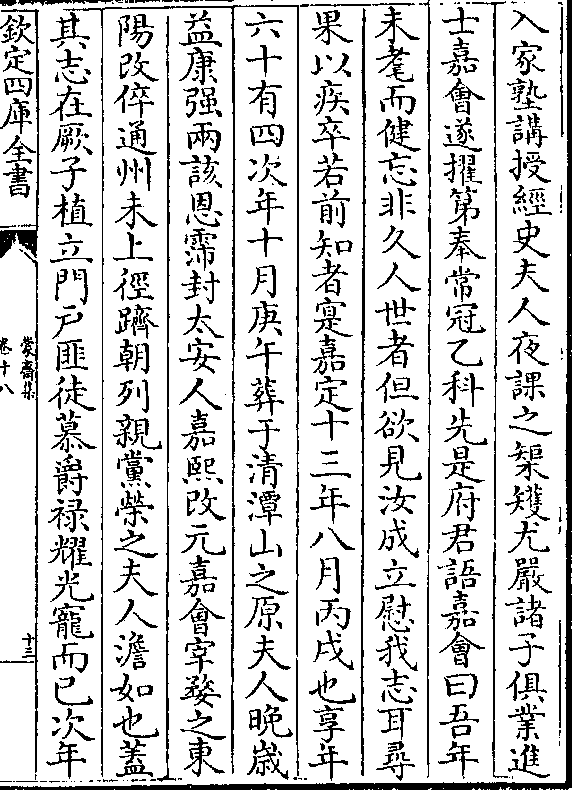 入家塾講授經史夫人夜課之榘矱尤嚴諸子俱業進
士嘉會遂擢第奉常冠乙科先是府君語嘉會曰吾年
未耄而健忘非久人世者但欲見汝成立慰我志耳尋
果以疾卒若前知者寔嘉定十三年八月丙戌也享年
六十有四次年十月庚午葬于清潭山之原夫人晚歲
益康强兩該恩霈封太安人嘉熙改元嘉會宰婺之東
陽改倅通州未上徑躋朝列親黨榮之夫人澹如也蓋
其志在厥子植立門户匪徒慕爵禄耀光寵而已次年
欽定四庫全書
蒙齋集
卷十八
十三